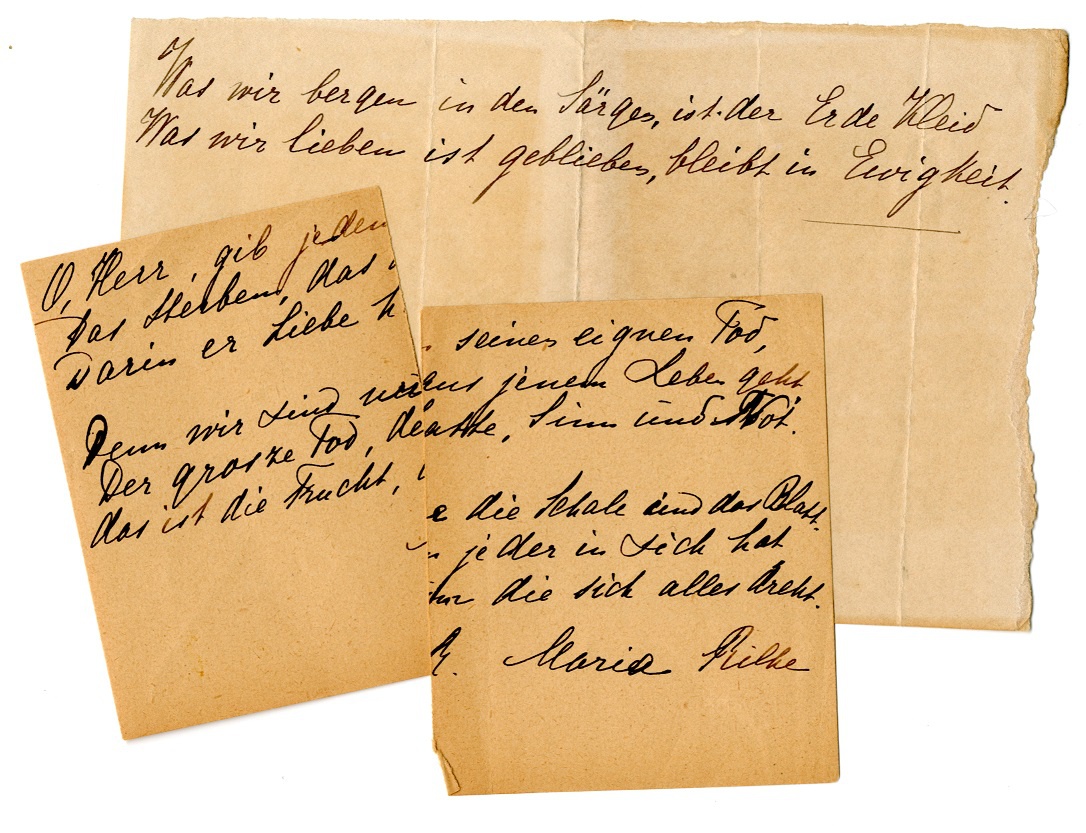 Was wir bergen in den Särgen, ist der Erde Kleid
Was wir lieben ist geblieben, bleibt in Ewigkeit.
O, Herr, gib jeden
Das Sterben, das
Darin er Liebe h
Denn wir sind
Der grosze Tod, de
das ist die Frucht,
seinen eignen Tod,
aus jenem Leben geht
atte, Sinn und Not.
e die Schale und das Blatt.
n jeder in sich hat
um die sich alles dreht.
R. Maria Rilke